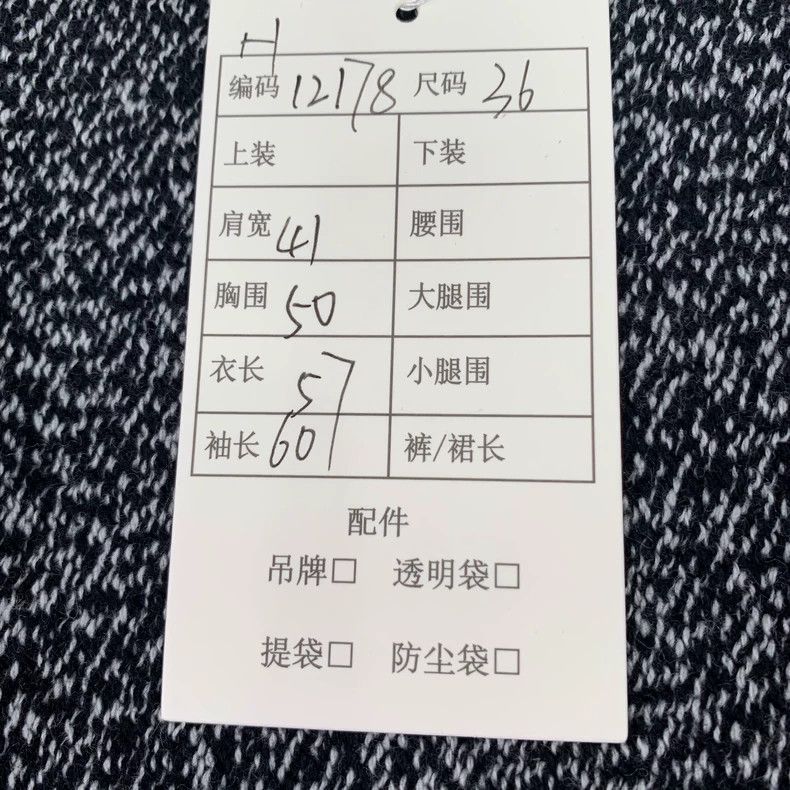 H
编码 12178 尺码 36
上装 下装
肩宽 41 腰围
胸围 50 大腿围
衣长 57 小腿围
袖长 60 裤/裙长
配件
吊牌□ 透明袋□
提袋□ 防尘袋□